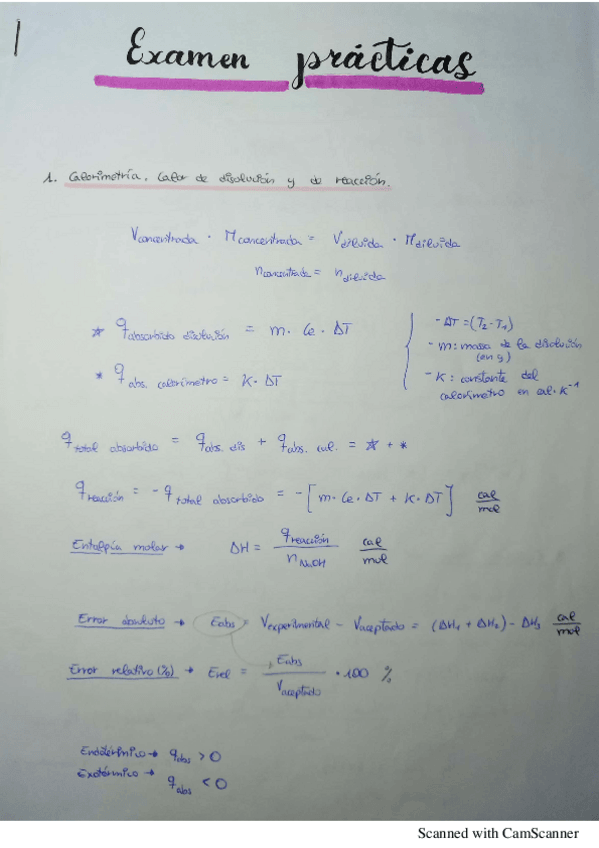 Examen prácticas
1. Calorimetría. Calor de disolución y de reacción.
Vconcentrada · Mconcentrada = Vdiluida · Mdiluida
nconcentrada = ndiluida
* qabsorbido disolución = m · Ce · ΔT
* qabs. calorímetro = K · ΔT
- ΔT = (T2 - T1)
- m: massa de la disolución
(en g)
- K: constante del
calorímetro en cal · K⁻¹
qtotal absorbido = qabs. dis + qabs. cal. = * + *
qreacción = - qtotal absorbido = - [m · Ce · ΔT + K · ΔT] cal/mol
Entalpía molar → ΔH = qreacción / nNaOH cal/mol
Error absoluto → Eabs = Vexperimental - Vaceptado = (ΔH1 + ΔH2) - ΔH3 cal/mol
Error relativo (%) → Erel = Eabs / Vaceptado · 100 %
Endotérmico → qabs > 0
Exotérmico → qabs < 0
Scanned with CamScanner